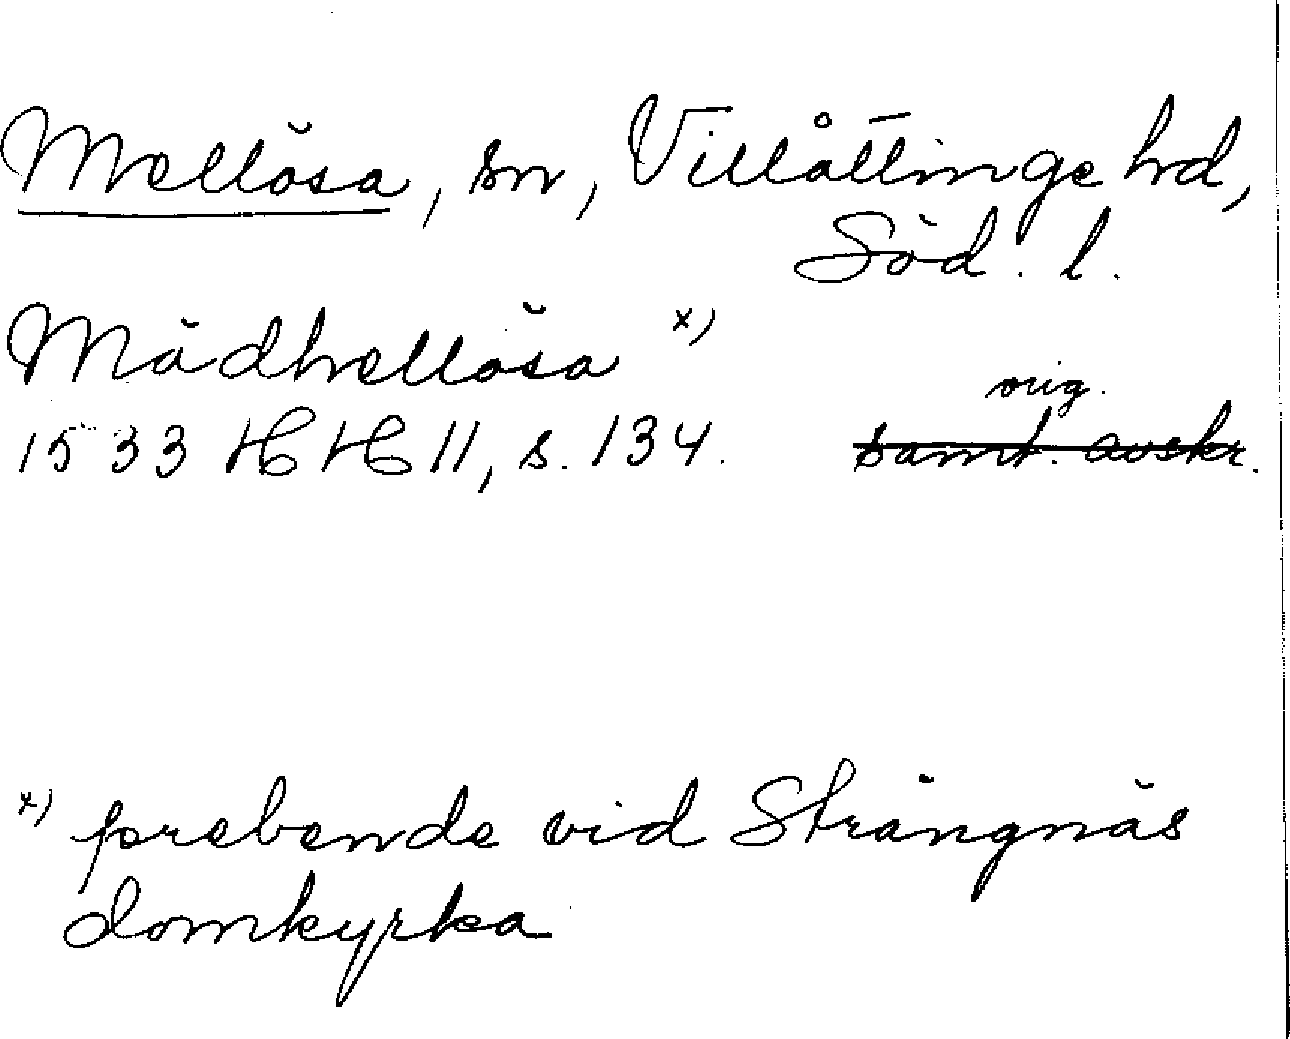 Mellösa, sn, Villåttinge hd,
Söd. l.
Mädhellösa x)
orig.
1533 HH 11, s. 134. samt. avskr.
x) prebende vid Strängnäs
domkyrka